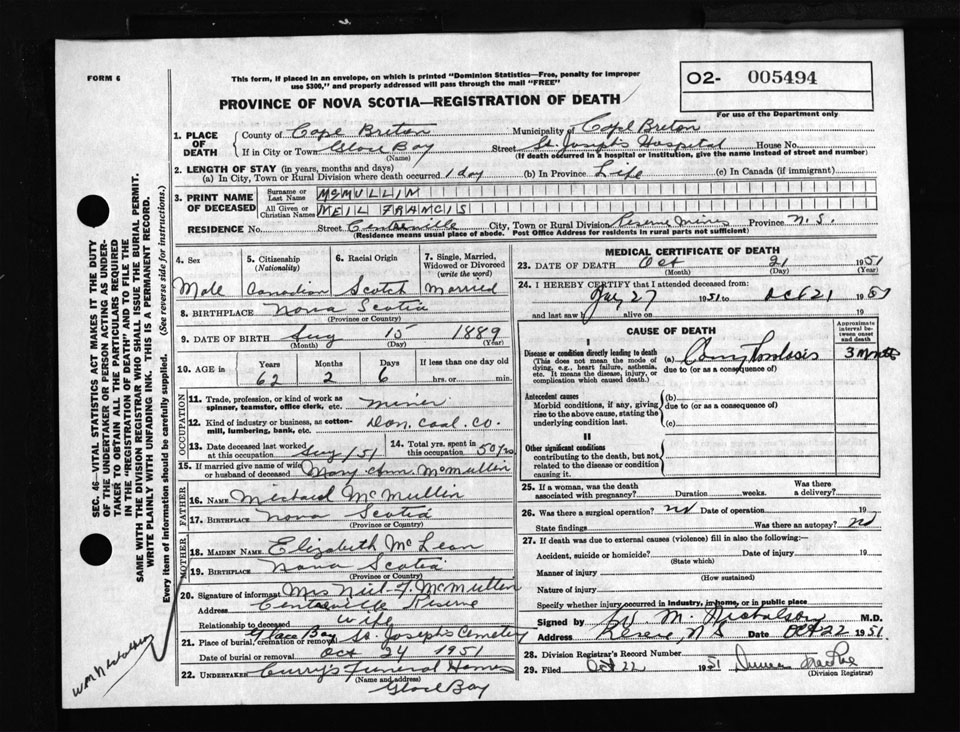 FORM 6
This form, if placed in an envelope, on which is printed "Dominion Statistics—Free, penalty for improper
use $300," and properly addressed will pass through the mail "FREE"
O2- 005494
For use of the Department only
PROVINCE OF NOVA SCOTIA—REGISTRATION OF DEATH
1. PLACE OF DEATH
County of Cape Breton Municipality of Cape Breton
If in City or Town Glace Bay Street St. Joseph's Hospital House No.
(Name) (If death occurred in a hospital or institution, give the name instead of street and number)
2. LENGTH OF STAY (in years, months and days)
(a) In City, Town or Rural Division where death occurred 1 day (b) In Province Life (c) In Canada (if immigrant)
3. PRINT NAME OF DECEASED
Surname or Last Name MCMULLIN
All Given or Christian Names NEIL FRANCIS
RESIDENCE No. Street Centreville City, Town or Rural Division Reserve Mines Province N.S.
(Residence means usual place of abode. Post Office Address for residents in rural parts not sufficient)
4. Sex 5. Citizenship (Nationality) 6. Racial Origin 7. Single, Married, Widowed or Divorced (write the word)
Male Canadian Scotch Married
8. BIRTHPLACE Nova Scotia
(Province or Country)
9. DATE OF BIRTH Aug 15 1889
(Month) (Day) (Year)
10. AGE in Years Months Days If less than one day old
62 2 6 hrs. or min.
OCCUPATION
11. Trade, profession, or kind of work as spinner, teamster, office clerk, etc. miner
12. Kind of industry or business, as cotton-mill, lumbering, bank, etc. Dom. Coal. Co.
13. Date deceased last worked at this occupation Aug /51 14. Total yrs. spent in this occupation 50 yrs.
15. If married give name of wife or husband of deceased Mary Ann McMullin
FATHER
16. NAME Michael McMullin
17. BIRTHPLACE Nova Scotia
(Province or Country)
MOTHER
18. MAIDEN NAME Elizabeth McLean
19. BIRTHPLACE Nova Scotia
(Province or Country)
20. Signature of informant Mrs Neil F. McMullin
Address Centreville Reserve
Relationship to deceased wife
21. Place of burial, cremation or removal Glace Bay St. Joseph's Cemetery
Date of burial or removal Oct 24 1951
22. UNDERTAKER Curry's Funeral Home
(Name and address)
Glace Bay
MEDICAL CERTIFICATE OF DEATH
23. DATE OF DEATH Oct 21 1951
(Month) (Day) (Year)
24. I HEREBY CERTIFY that I attended deceased from:
27 1951 to Oct 21 1951
and last saw h alive on 19
CAUSE OF DEATH
Approximate interval between onset and death
I
Disease or condition directly leading to death (a) 3 months
(This does not mean the mode of dying, e.g., heart failure, asthenia, etc. It means the disease, injury, or complication which caused death.)
due to (or as a consequence of)
Antecedent causes (b)
Morbid conditions, if any, giving rise to the above cause, stating the underlying condition last.
due to (or as a consequence of)
(c)
II
Other significant conditions
contributing to the death, but not related to the disease or condition causing it.
25. If a woman, was the death associated with pregnancy? Duration weeks. Was there a delivery?
26. Was there a surgical operation? no Date of operation 19
State findings Was there an autopsy? no
27. If death was due to external causes (violence) fill in also the following:—
Accident, suicide or homicide? Date of injury 19
(State which)
Manner of injury
(How sustained)
Nature of injury
Specify whether injury occurred in industry, in home, or in public place
Signed by M. Nicholson M.D.
Address Reserve, N S Date Oct 22 1951.
28. Division Registrar's Record Number
29. Filed Oct 22 1951
(Division Registrar)
SEC. 46—VITAL STATISTICS ACT MAKES IT THE DUTY
OF THE UNDERTAKER OR PERSON ACTING AS UNDERTAKER
TO OBTAIN ALL THE PARTICULARS REQUIRED
IN THE "REGISTRATION OF DEATH" AND TO FILE THE
SAME WITH THE DIVISION REGISTRAR WHO SHALL ISSUE THE BURIAL PERMIT.
WRITE PLAINLY WITH UNFADING INK. THIS IS A PERMANENT RECORD.
Every item of information should be carefully supplied. (See reverse side for instructions.)